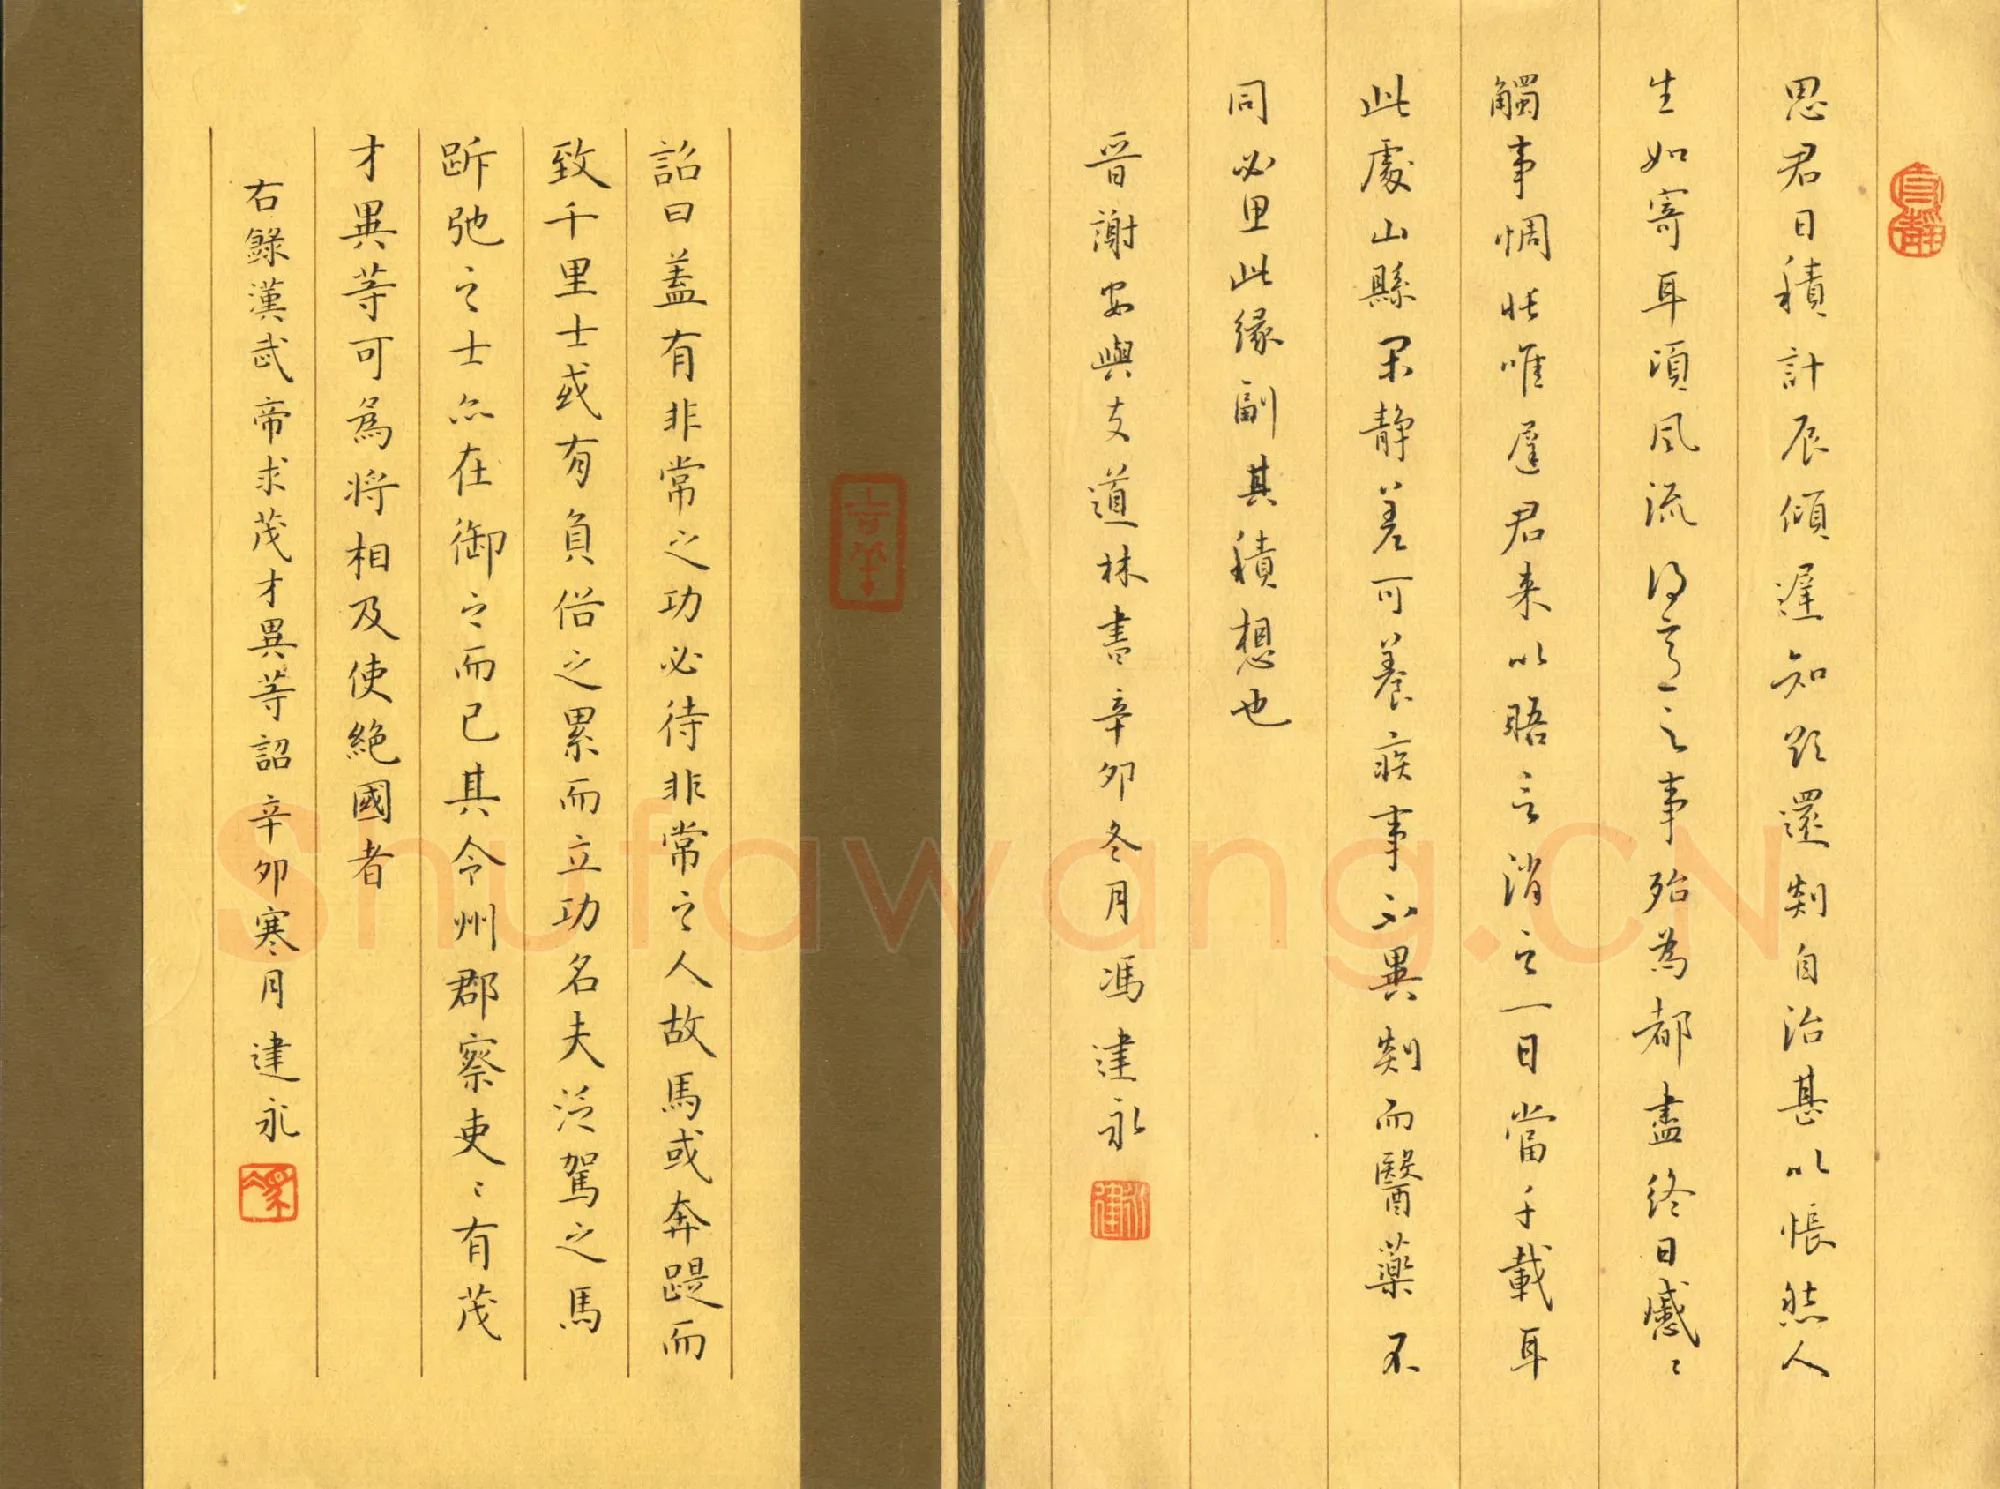 思君日積計辰傾遲知欲還剡自治甚以悵然人
生如寄耳頃風流得意之事殆為都盡終日慼〻
觸事惆悵唯遲君来以晤言消之一日當千載耳
此處山縣閑静差可養疾事不異剡而醫藥不
同必思此緣副其積想也
晉謝安與支道林書辛卯冬月馮建永
建永
詔曰蓋有非常之功必待非常之人故馬或奔踶而
致千里士或有負俗之累而立功名夫泛駕之馬
跅弛之士亦在御之而已其令州郡察吏〻有茂
才異等可為將相及使絕國者
右錄漢武帝求茂才異等詔辛卯寒月建永
Shufawang.CN